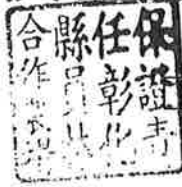 保證責
任彰化
縣員
合作